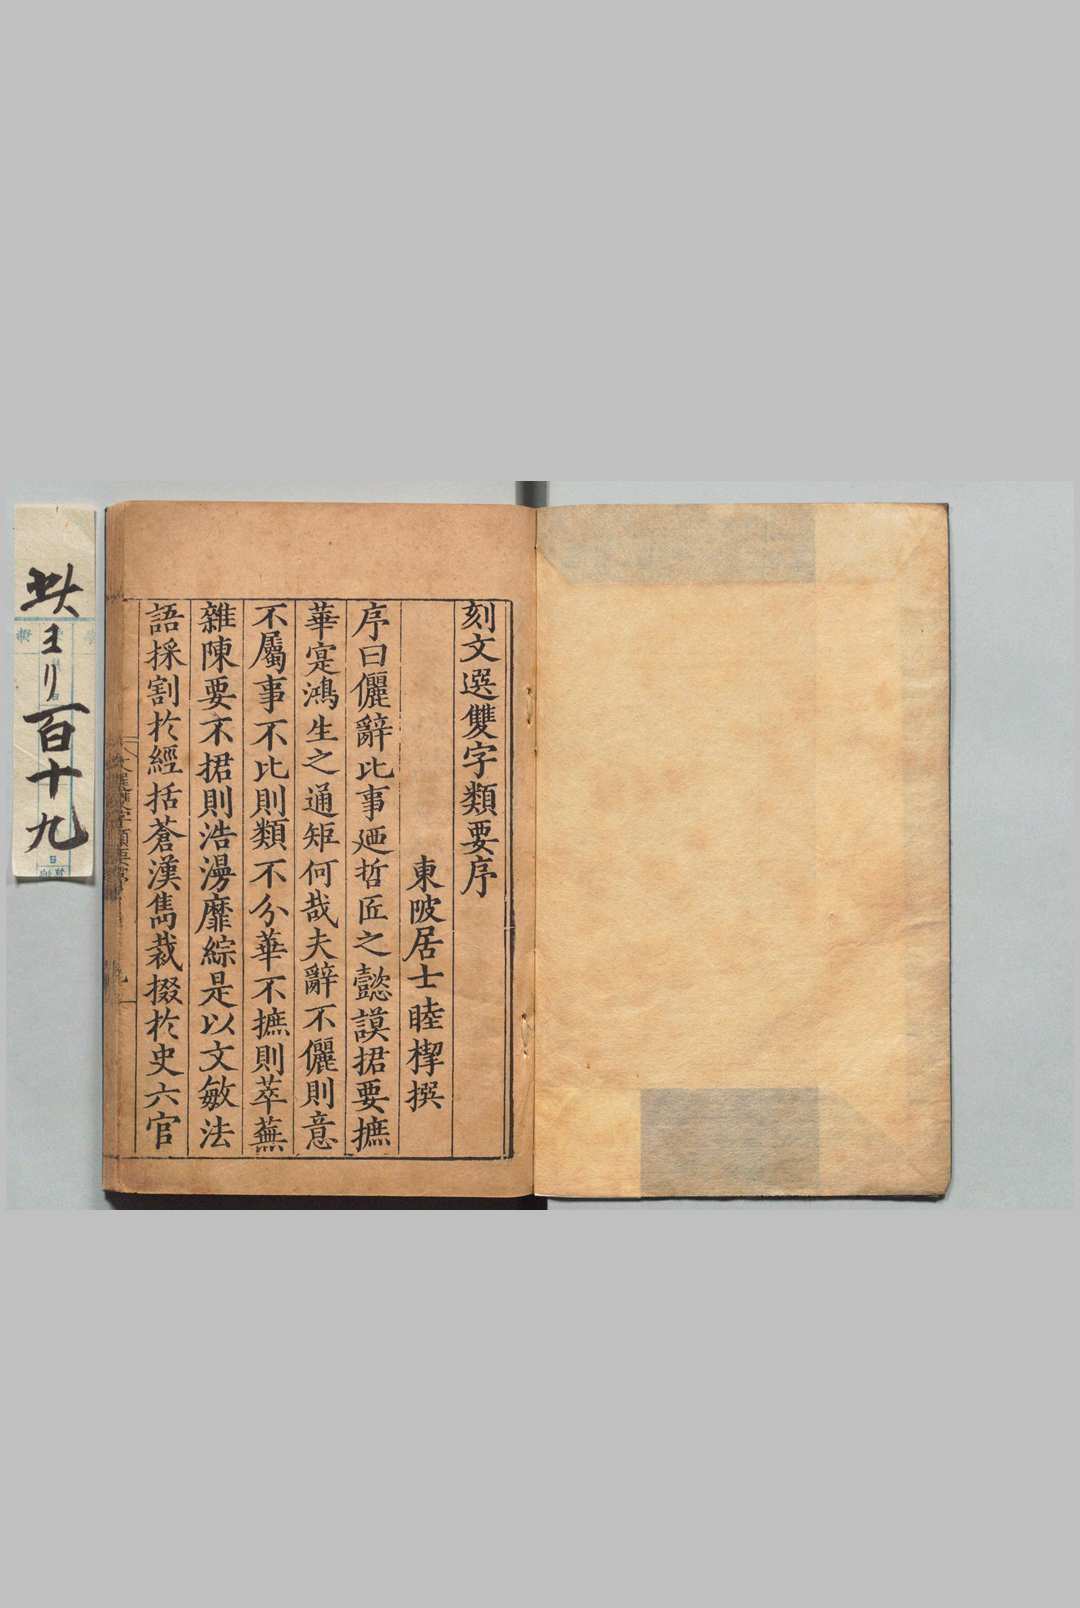 刻文選雙字類要序
東陂居士睦㮮撰
序曰儷辭比事廼哲匠之懿謨捃要摭
華寔鴻生之通矩何哉夫辭不儷則意
不屬事不比則類不分華不摭則萃蕪
雜陳要不捃則浩漫靡綜是以文敏法
語採割於經括蒼漢雋裁掇於史六官
文選雙字類要
此ヨリ百十九